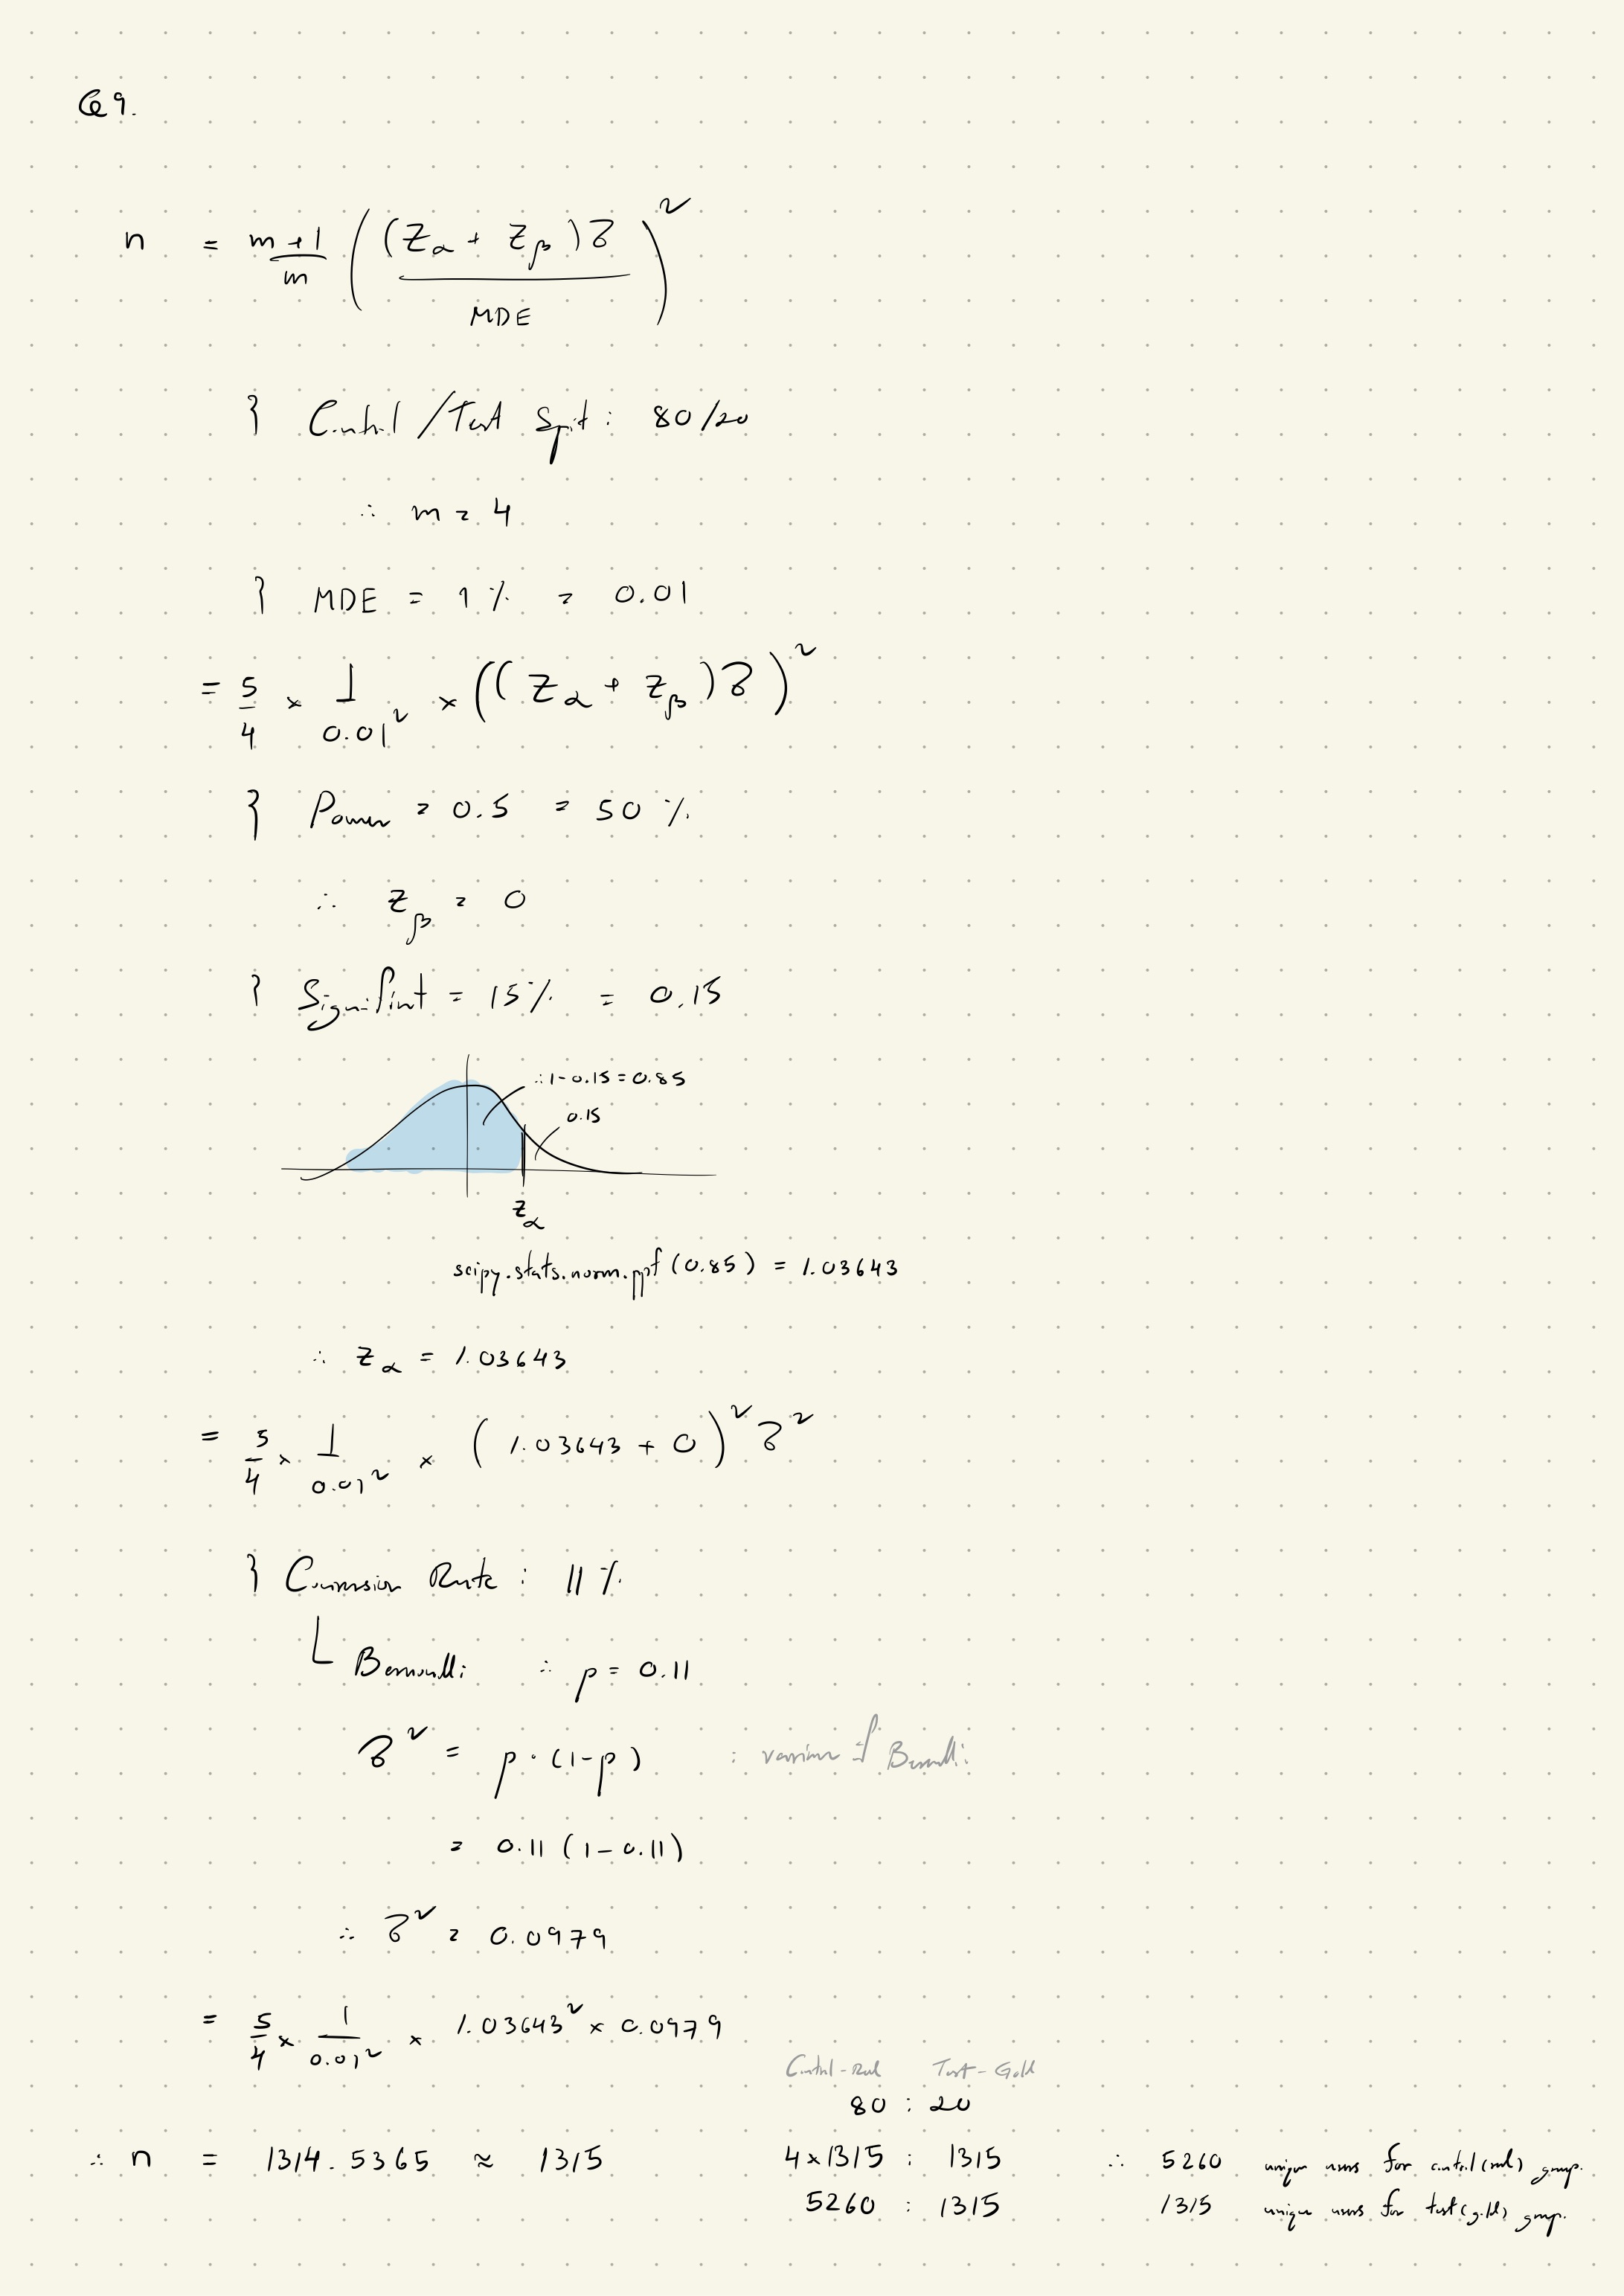 Q9.
n = m+1/m ( (Zα + Zβ)σ / MDE )²
} Control/Test Split: 80/20
∴ m = 4
} MDE = 1% = 0.01
= 5/4 × 1/0.01² × ((Zα + Zβ)σ)²
} Power = 0.5 = 50%
∴ Zβ = 0
} Significant = 15% = 0.15
∴ 1-0.15 = 0.85
0.15
Zα
scipy.stats.norm.ppf(0.85) = 1.03643
∴ Zα = 1.03643
= 5/4 × 1/0.01² × (1.03643 + 0)² σ²
} Conversion Rate: 11%
Bernoulli ∴ p = 0.11
σ² = p·(1-p) : variance of Bernoulli
= 0.11(1-0.11)
∴ σ² = 0.0979
= 5/4 × 1/0.01² × 1.03643² × 0.0979
Control-Red Test-Gold
80 : 20
∴ n = 1314.5365 ≈ 1315 4×1315 : 1315 ∴ 5260 unique users for control(red) group.
5260 : 1315 1315 unique users for test(gold) group.